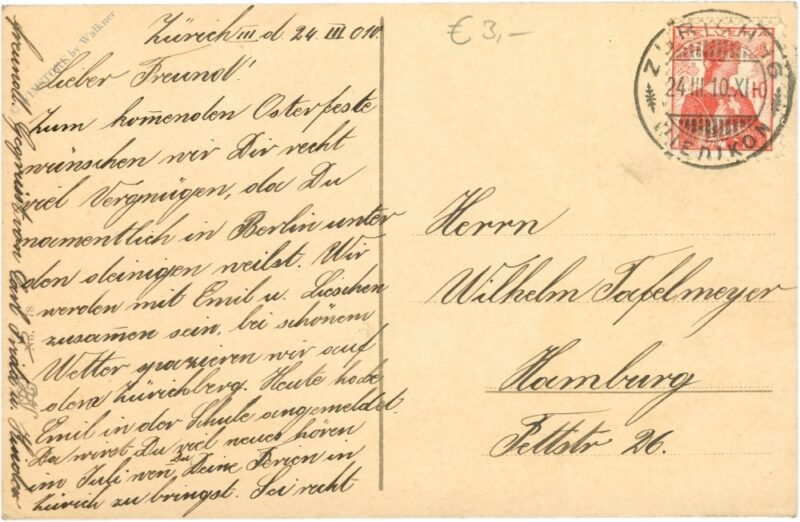 Zürich III d. 24 III 010
€ 3,-
INSTOCK by Walkner
Lieber Freund!
Zum kom̅enden Osterfeste
wünschen wir Dir recht
viel Vergnügen, da Du
namentlich in Berlin unter
den deinigen weilst. Wir
werden mit Emil u. Lieschen
zusam̅en sein, bei schönem
Wetter spazieren wir auf
dem Zürichberg. Heute habe
Emil in der Schule angemeldet.
Da wirst Du viel neues hören
im Juli wen̅ Du Deine Ferien in
Zürich zu bringst. Sei recht
freundl. Gegrüsst von Carl Frida u.
No. 78
24.III.10.XI
WIEDIKON
Herrn
Wilhelm Tafelmeyer
Hamburg
Pettstr 26.